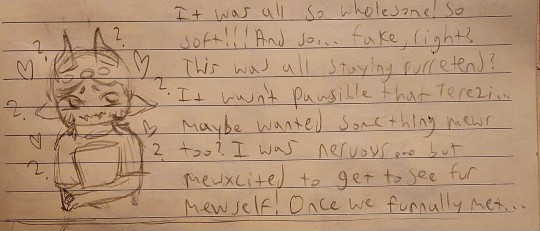 It was all so wholesome! So
soft!!! And so... fake, right?
This was all staying purretend?
It wasn't pawsible that Terezi...
Maybe wanted something mewr
too? I was nervous... but
mewxcited to get to see fur
mewself! Once we furnally met...
?
?
?
?
?
?
?